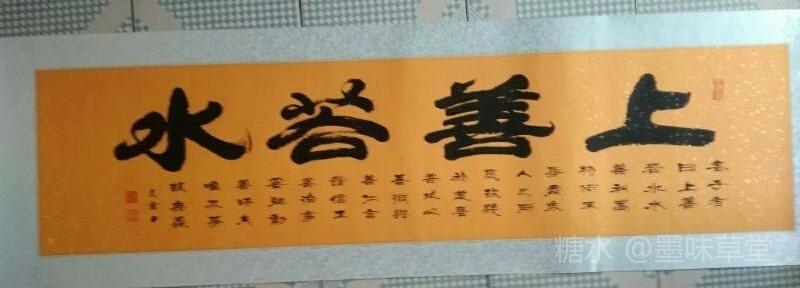 上善若水
老子者
曰上善
若水水
善利萬
物而不
爭處衆
人之所
惡故幾
於道居
善地心
善淵與
善仁言
善信正
善治事
善能動
善時夫
唯不爭
故無尤
糖水 @墨味草堂